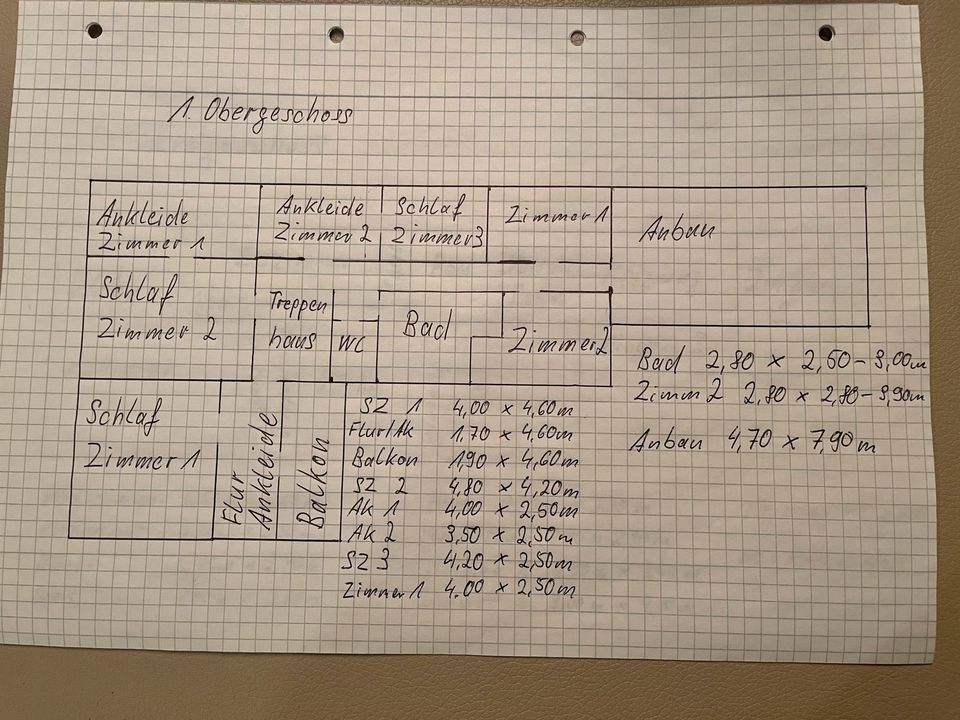 1. Obergeschoss
Ankleide
Zimmer 1
Ankleide
Zimmer 2
Schlaf
Zimmer 3
Zimmer 1
Anbau
Schlaf
Zimmer 2
Treppen
haus
WC
Bad
Zimmer 2
Schlaf
Zimmer 1
Flur
Ankleide
Balkon
Bad 2,80 x 2,50 - 3,00m
Zimm 2 2,80 x 2,80 - 3,90m
Anbau 4,70 x 7,90 m
SZ 1 4,00 x 4,60m
Flur/Ak 1,70 x 4,60m
Balkon 1,90 x 4,60m
SZ 2 4,80 x 4,20m
Ak 1 4,00 x 2,50m
Ak 2 3,50 x 2,50m
SZ 3 4,20 x 2,50m
Zimmer 1 4.00 x 2,50m